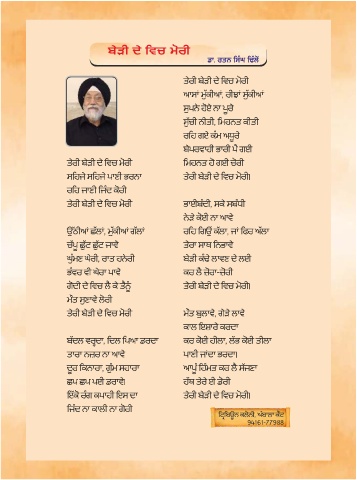 ਬੇੜੀ ਦੇ ਵਿਚ ਮੋਰੀ
ਡਾ. ਰਤਨ ਸਿੰਘ ਢਿੱਲੋਂ
ਤੇਰੀ ਬੇੜੀ ਦੇ ਵਿਚ ਮੋਰੀ
ਸਹਿਜੇ ਸਹਿਜੇ ਪਾਣੀ ਭਰਨਾ
ਰਹਿ ਜਾਣੀ ਜਿੰਦ ਕੋਰੀ
ਤੇਰੀ ਬੇੜੀ ਦੇ ਵਿਚ ਮੋਰੀ
ਉੱਠੀਆਂ ਛੱਲਾਂ, ਮੁੱਕੀਆਂ ਗੱਲਾਂ
ਚੱਪੂ ਛੁੱਟ ਛੁੱਟ ਜਾਵੇ
ਘੁੰਮਣ ਘੇਰੀ, ਰਾਤ ਹਨੇਰੀ
ਭੰਵਰ ਵੀ ਘੇਰਾ ਪਾਵੇ
ਗੋਦੀ ਦੇ ਵਿਚ ਲੈ ਕੇ ਤੈਨੂੰ
ਮੌਤ ਸੁਣਾਵੇ ਲੋਰੀ
ਤੇਰੀ ਬੇੜੀ ਦੇ ਵਿਚ ਮੋਰੀ
ਬੱਦਲ ਵਰ੍ਹਦਾ, ਦਿਲ ਪਿਆ ਡਰਦਾ
ਤਾਰਾ ਨਜ਼ਰ ਨਾ ਆਵੇ
ਦੂਰ ਕਿਨਾਰਾ, ਗੁੰਮ ਸਹਾਰਾ
ਛਪ ਛਪ ਪਈ ਡਰਾਵੇ
ਇੱਕੋ ਰੰਗ ਕਪਾਹੀ ਇਸ ਦਾ
ਜਿੰਦ ਨਾ ਕਾਲੀ ਨਾ ਗੋਰੀ
ਤੇਰੀ ਬੇੜੀ ਦੇ ਵਿਚ ਮੋਰੀ
ਆਸਾਂ ਮੁੱਕੀਆਂ, ਰੀਝਾਂ ਸੁੱਕੀਆਂ
ਸੁਪਨੇ ਹੋਏ ਨਾ ਪੂਰੇ
ਸੁੱਚੀ ਨੀਤੀ, ਮਿਹਨਤ ਕੀਤੀ
ਰਹਿ ਗਏ ਕੰਮ ਅਧੂਰੇ
ਬੇਪਰਵਾਹੀ ਭਾਰੀ ਪੈ ਗਈ
ਮਿਹਨਤ ਹੋ ਗਈ ਚੋਰੀ
ਤੇਰੀ ਬੇੜੀ ਦੇ ਵਿਚ ਮੋਰੀ।
ਭਾਈਬੰਦੀ, ਸਕੇ ਸਬੰਧੀ
ਨੇੜੇ ਕੋਈ ਨਾ ਆਵੇ
ਰਹਿ ਗਿਉਂ ਕੱਲਾ, ਜਾਂ ਫਿਰ ਅੱਲਾ
ਤੇਰਾ ਸਾਥ ਨਿਭਾਵੇ
ਬੇੜੀ ਕੰਢੇ ਲਾਵਣ ਦੇ ਲਈ
ਕਰ ਲੈ ਜ਼ੋਰਾ-ਜ਼ੋਰੀ
ਤੇਰੀ ਬੇੜੀ ਦੇ ਵਿਚ ਮੋਰੀ।
ਮੌਤ ਬੁਲਾਵੇ, ਗੇੜੇ ਲਾਵੇ
ਕਾਲ ਇਸ਼ਾਰੇ ਕਰਦਾ
ਕਰ ਕੋਈ ਹੀਲਾ, ਲੱਭ ਕੋਈ ਤੀਲਾ
ਪਾਣੀ ਜਾਂਦਾ ਭਰਦਾ।
ਆਪੂੰ ਹਿੰਮਤ ਕਰ ਲੈ ਸੱਜਣਾ
ਹੱਥ ਤੇਰੇ ਈ ਡੋਰੀ
ਤੇਰੀ ਬੇੜੀ ਦੇ ਵਿਚ ਮੋਰੀ।
ਟ੍ਰਿਬਿਊਨ ਕਲੋਨੀ, ਅੰਬਾਲਾ ਕੈਂਟ
94161-77988